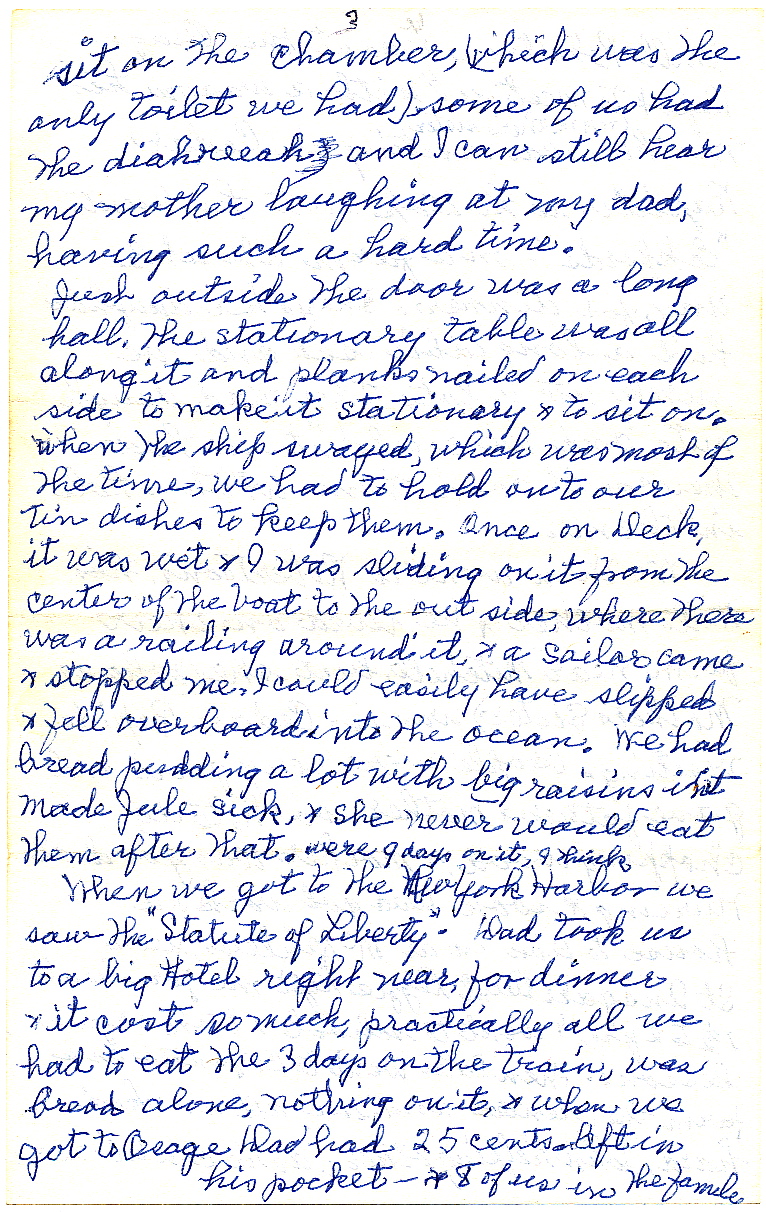 3
sit on the chamber, (which was the
only toilet we had) some of us had
the diahrreah, and I can still hear
my mother laughing at my dad,
having such a hard time.
Just outside the door was a long
hall. The stationary table was all
along it and planks nailed on each
side to make it stationary & to sit on.
When the ship swayed, which was most of
the time, we had to hold on to our
tin dishes to keep them. Once on Deck,
it was wet & I was sliding on it from the
center of the boat to the out side, where there
was a railing around it, & a Sailor came
& stopped me. I could easily have slipped
& fell overboard into the ocean. We had
bread pudding a lot with big raisins in it
made Jule sick, & she never would eat
them after that. were 9 days on it, I think
When we got to the New York Harbor we
saw the "Statute of Liberty". Dad took us
to a big Hotel right near, for dinner
& it cost so much, practically all we
had to eat the 3 days on the train, was
bread alone, nothing on it, & when we
got to Osage Dad had 25 cents left in
his pocket - & 8 of us in the family